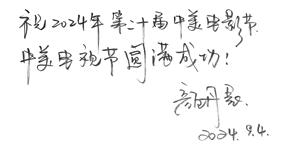 祝2024年第二十届中美电影节
中美电视节圆满成功！
2024.9.4.